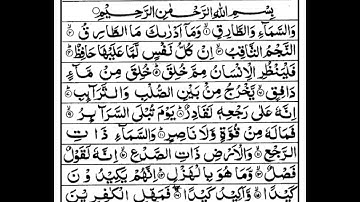 بِسْمِ اللهِ الرَّحْمٰنِ الرَّحِيْمِ
وَالسَّمَآءِ وَالطَّارِقِ ۙ وَمَآ اَدْرٰىكَ مَا الطَّارِقُ ۙ
النَّجْمُ الثَّاقِبُ ۙ اِنْ كُلُّ نَفْسٍ لَّمَّا عَلَيْهَا حَافِظٌ ؕ
فَلْيَنْظُرِ الْاِنْسَانُ مِمَّ خُلِقَ ؕ خُلِقَ مِنْ مَّآءٍ
دَافِقٍ ۙ يَّخْرُجُ مِنْۢ بَيْنِ الصُّلْبِ وَالتَّرَآئِبِ ؕ
اِنَّهٗ عَلٰى رَجْعِهٖ لَقَادِرٌ ؕ يَوْمَ تُبْلَى السَّرَآئِرُ ۙ
فَمَا لَهٗ مِنْ قُوَّةٍ وَّلَا نَاصِرٍ ؕ وَالسَّمَآءِ ذَاتِ
الرَّجْعِ ۙ وَالْاَرْضِ ذَاتِ الصَّدْعِ ۙ اِنَّهٗ لَقَوْلٌ
فَصْلٌ ۙ وَّمَا هُوَ بِالْهَزْلِ ؕ اِنَّهُمْ يَكِيْدُوْنَ
كَيْدًا ۙ وَّاَكِيْدُ كَيْدًا ۚ فَمَهِّلِ الْكٰفِرِيْنَ